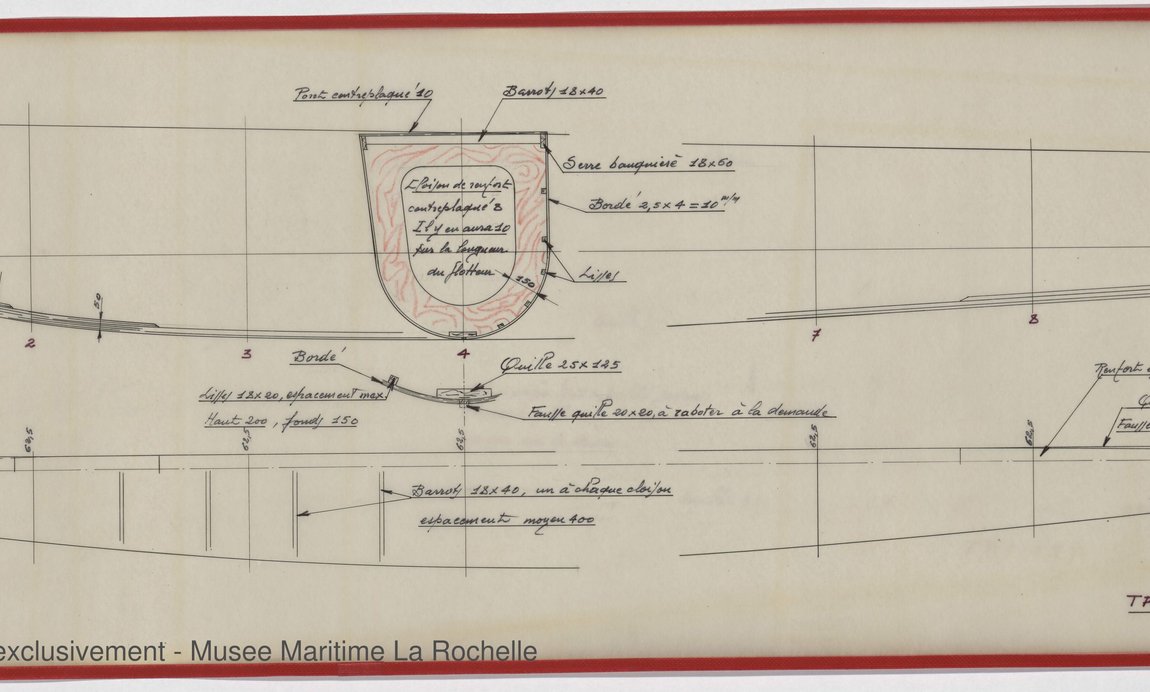 Pont contreplaqué 10
Barrots 18x40
Serre bauquière 18x60
Cloison de renfort
contreplaqué 8
Il y en aura 10
sur la longueur
du flotteur
Bordé 2,5x4=10 m/m
Lisses
150
50
2
3
4
7
8
Bordé
Quille 25x125
Lisses 18x20, espacement max
Haut 200, fonds 150
Fausse quille 20x20, à raboter à la demande
Renfort
Fausse
62,5
62,5
62,5
62,5
62,5
Barrots 18x40, un à chaque cloison
espacement moyen 400
exclusivement - Musee Maritime La Rochelle